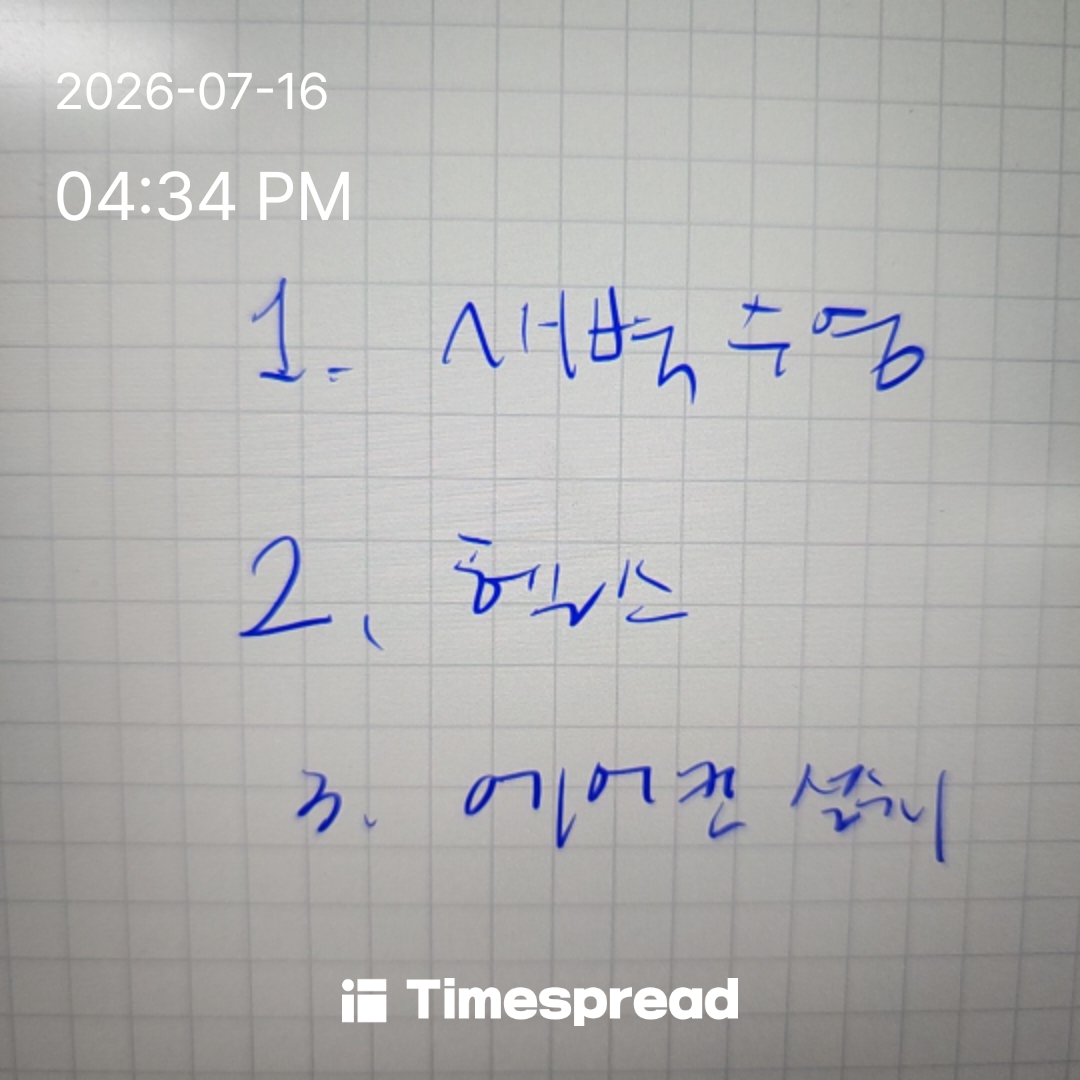 2026-07-16
04:34 PM
1. 새벽 수영
2. 헬스
3. 에어컨 설치
Timespread